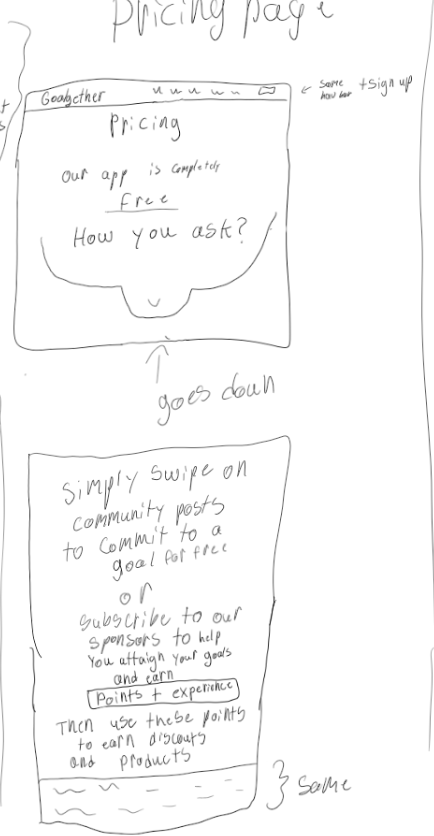 Pricing page
Goalgether
same nav bar + sign up
Pricing
our app is completely
Free
How you ask?
goes down
simply swipe on
community posts
to commit to a
goal for free
or
subscribe to our
sponsors to help
you attaign your goals
and earn
Points + experience
Then use these points
to earn discouts
and products
same